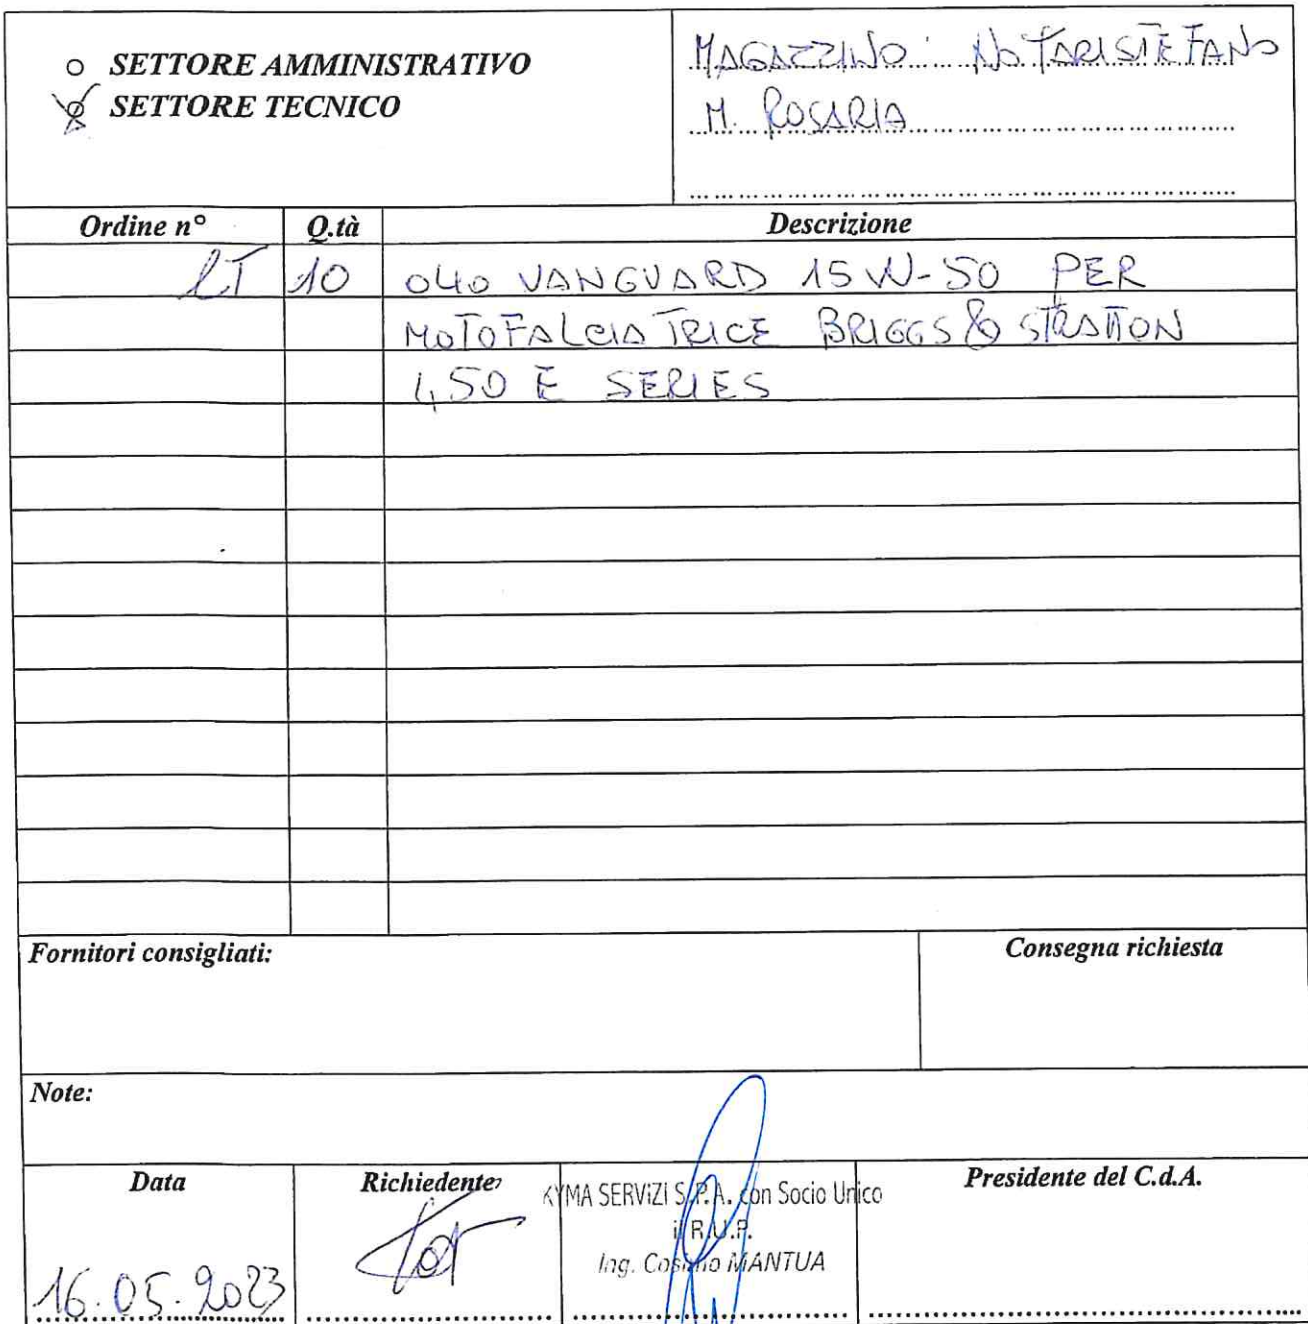 SETTORE AMMINISTRATIVO
SETTORE TECNICO
MAGAZZINO: NOTARISTEFANO
M. ROSARIA
Ordine n° Q.tà Descrizione
LT 10 OLIO VANGUARD 15W-50 PER
MOTOFALCIATRICE BRIGGS & STRATTON
450 E SERIES
Fornitori consigliati: Consegna richiesta
Note:
Data Richiedente Presidente del C.d.A.
KYMA SERVIZI S.P.A. con Socio Unico
il R.U.P.
Ing. Cosimo MANTUA
16.05.2023